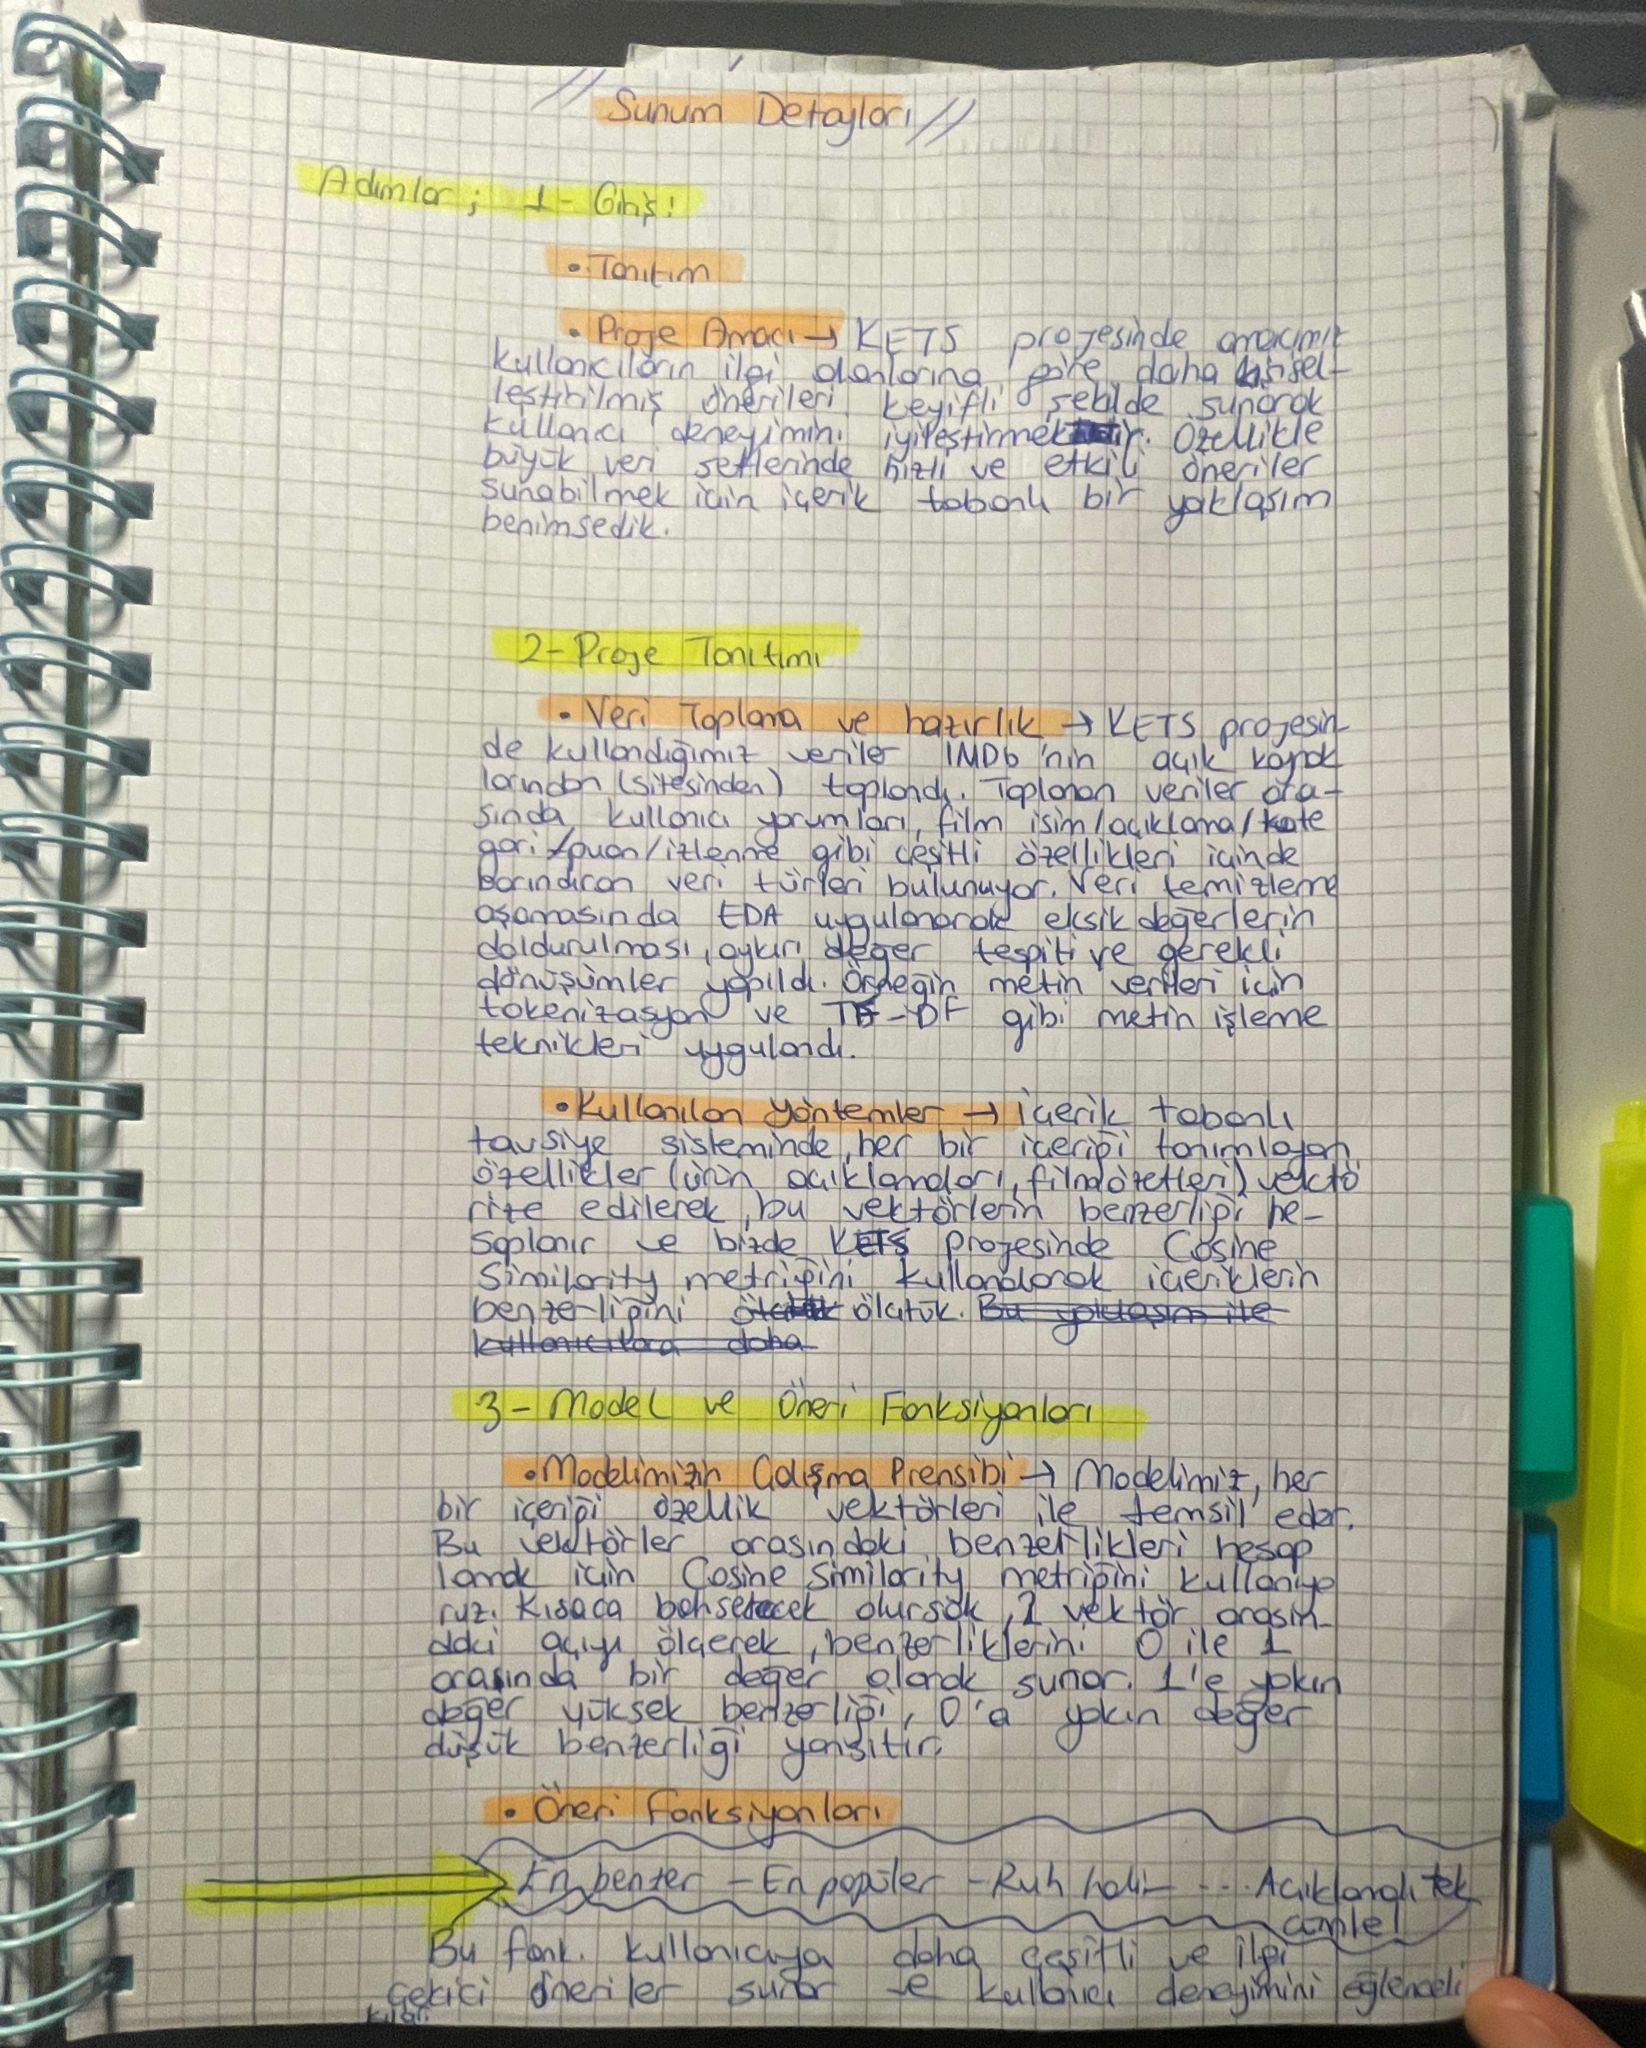 // Sunum Detayları //
Adımlar ; 1- Giriş!
• Tanıtım
• Proje Amacı → KETS projesinde amacımız
kullanıcıların ilgi alanlarına göre daha kişisel-
leştirilmiş önerileri keyifli şekilde sunarak
kullanıcı deneyimini iyileştirmektir. Özellikle
büyük veri setlerinde hızlı ve etkili öneriler
sunabilmek için içerik tabanlı bir yaklaşım
benimsedik.
2- Proje Tanıtımı
• Veri Toplama ve hazırlık → KETS projesin-
de kullandığımız veriler IMDb'nin açık kaynak
larından (sitesinden) toplandı. Toplanan veriler ara-
sında kullanıcı yorumları, film isim/açıklama/kate
gori/puan/izlenme gibi çeşitli özellikleri içinde
barındıran veri türleri bulunuyor. Veri temizleme
aşamasında EDA uygulanarak eksik değerlerin
doldurulması, aykırı değer tespiti ve gerekli
dönüşümler yapıldı. Örneğin metin verileri için
tokenizasyon ve TF-IDF gibi metin işleme
teknikleri uygulandı.
• Kullanılan Yöntemler → İçerik tabanlı
tavsiye sisteminde, her bir içeriği tanımlayan
özellikler (ürün açıklamaları, film özetleri) vektö
rize edilerek, bu vektörlerin benzerliği he-
saplanır ve bizde KETS projesinde Cosine
Similarity metriğini kullandarak içeriklerin
benzerliğini ölçtük. Bu yaklaşım ile
kullanıcılara daha
3- Model ve Öneri Fonksiyonları
• Modelimizin Çalışma Prensibi → Modelimiz, her
bir içeriği özellik vektörleri ile temsil eder.
Bu vektörler arasındaki benzerlikleri hesap
lamak için Cosine Similarity metriğini kullanıyo
ruz. Kısaca bahsetecek olursak, 2 vektör arasın-
daki açıyı ölçerek, benzerliklerini 0 ile 1
arasında bir değer olarak sunar. 1'e yakın
değer yüksek benzerliği, 0'a yakın değer
düşük benzerliği yansıtır.
• Öneri Fonksiyonları
En benzer - En popüler - Ruh hali - ... Açıklandı tek
cümle!
Bu fonk. kullanıcıya daha çeşitli ve ilgi
çekici öneriler sunar ve kullanıcı deneyimini eğlenceli
kılar.